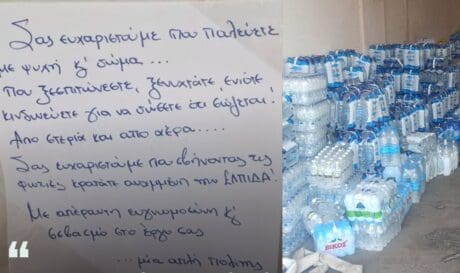 Σας ευχαριστούμε που παλεύετε
με ψυχή κ' σώμα...
που ξεσπιτώνεστε, ξενυχτάτε ενίοτε
κινδυνεύετε για να σώσετε ότι σώζεται!
Απο στεριά και απο αέρα....
Σας ευχαριστούμε που σβήνοντας τις
φωτιές κρατάτε αναμμένη την ΕΛΠΙΔΑ!
Με απέραντη ευγνωμοσύνη κ'
σεβασμό στο έργο σας
...μία απλή πολίτης
ΒΙΚΟΣ